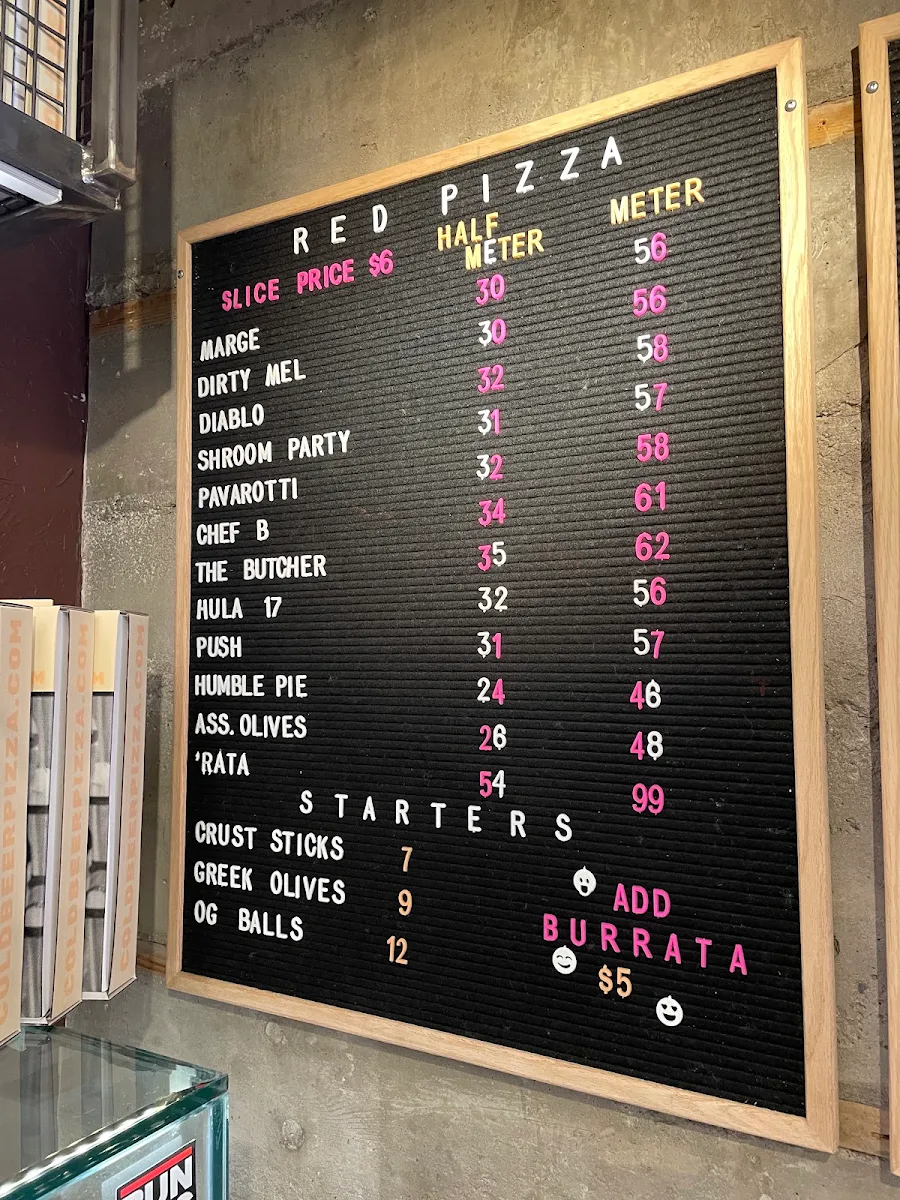 RED PIZZA
SLICE PRICE $6 HALF METER METER
MARGE 30 56
DIRTY MEL 30 56
DIABLO 32 58
SHROOM PARTY 31 57
PAVAROTTI 32 58
CHEF B 34 61
THE BUTCHER 35 62
HULA 17 32 56
PUSH 31 57
HUMBLE PIE 24 46
ASS. OLIVES 26 48
'RATA 54 99
STARTERS
CRUST STICKS 7
GREEK OLIVES 9
OG BALLS 12
ADD
BURRATA
$5
COLDBEERPIZZA.COM
COLDBEERPIZZA.COM
COLDBEERPIZZA.COM
RUN